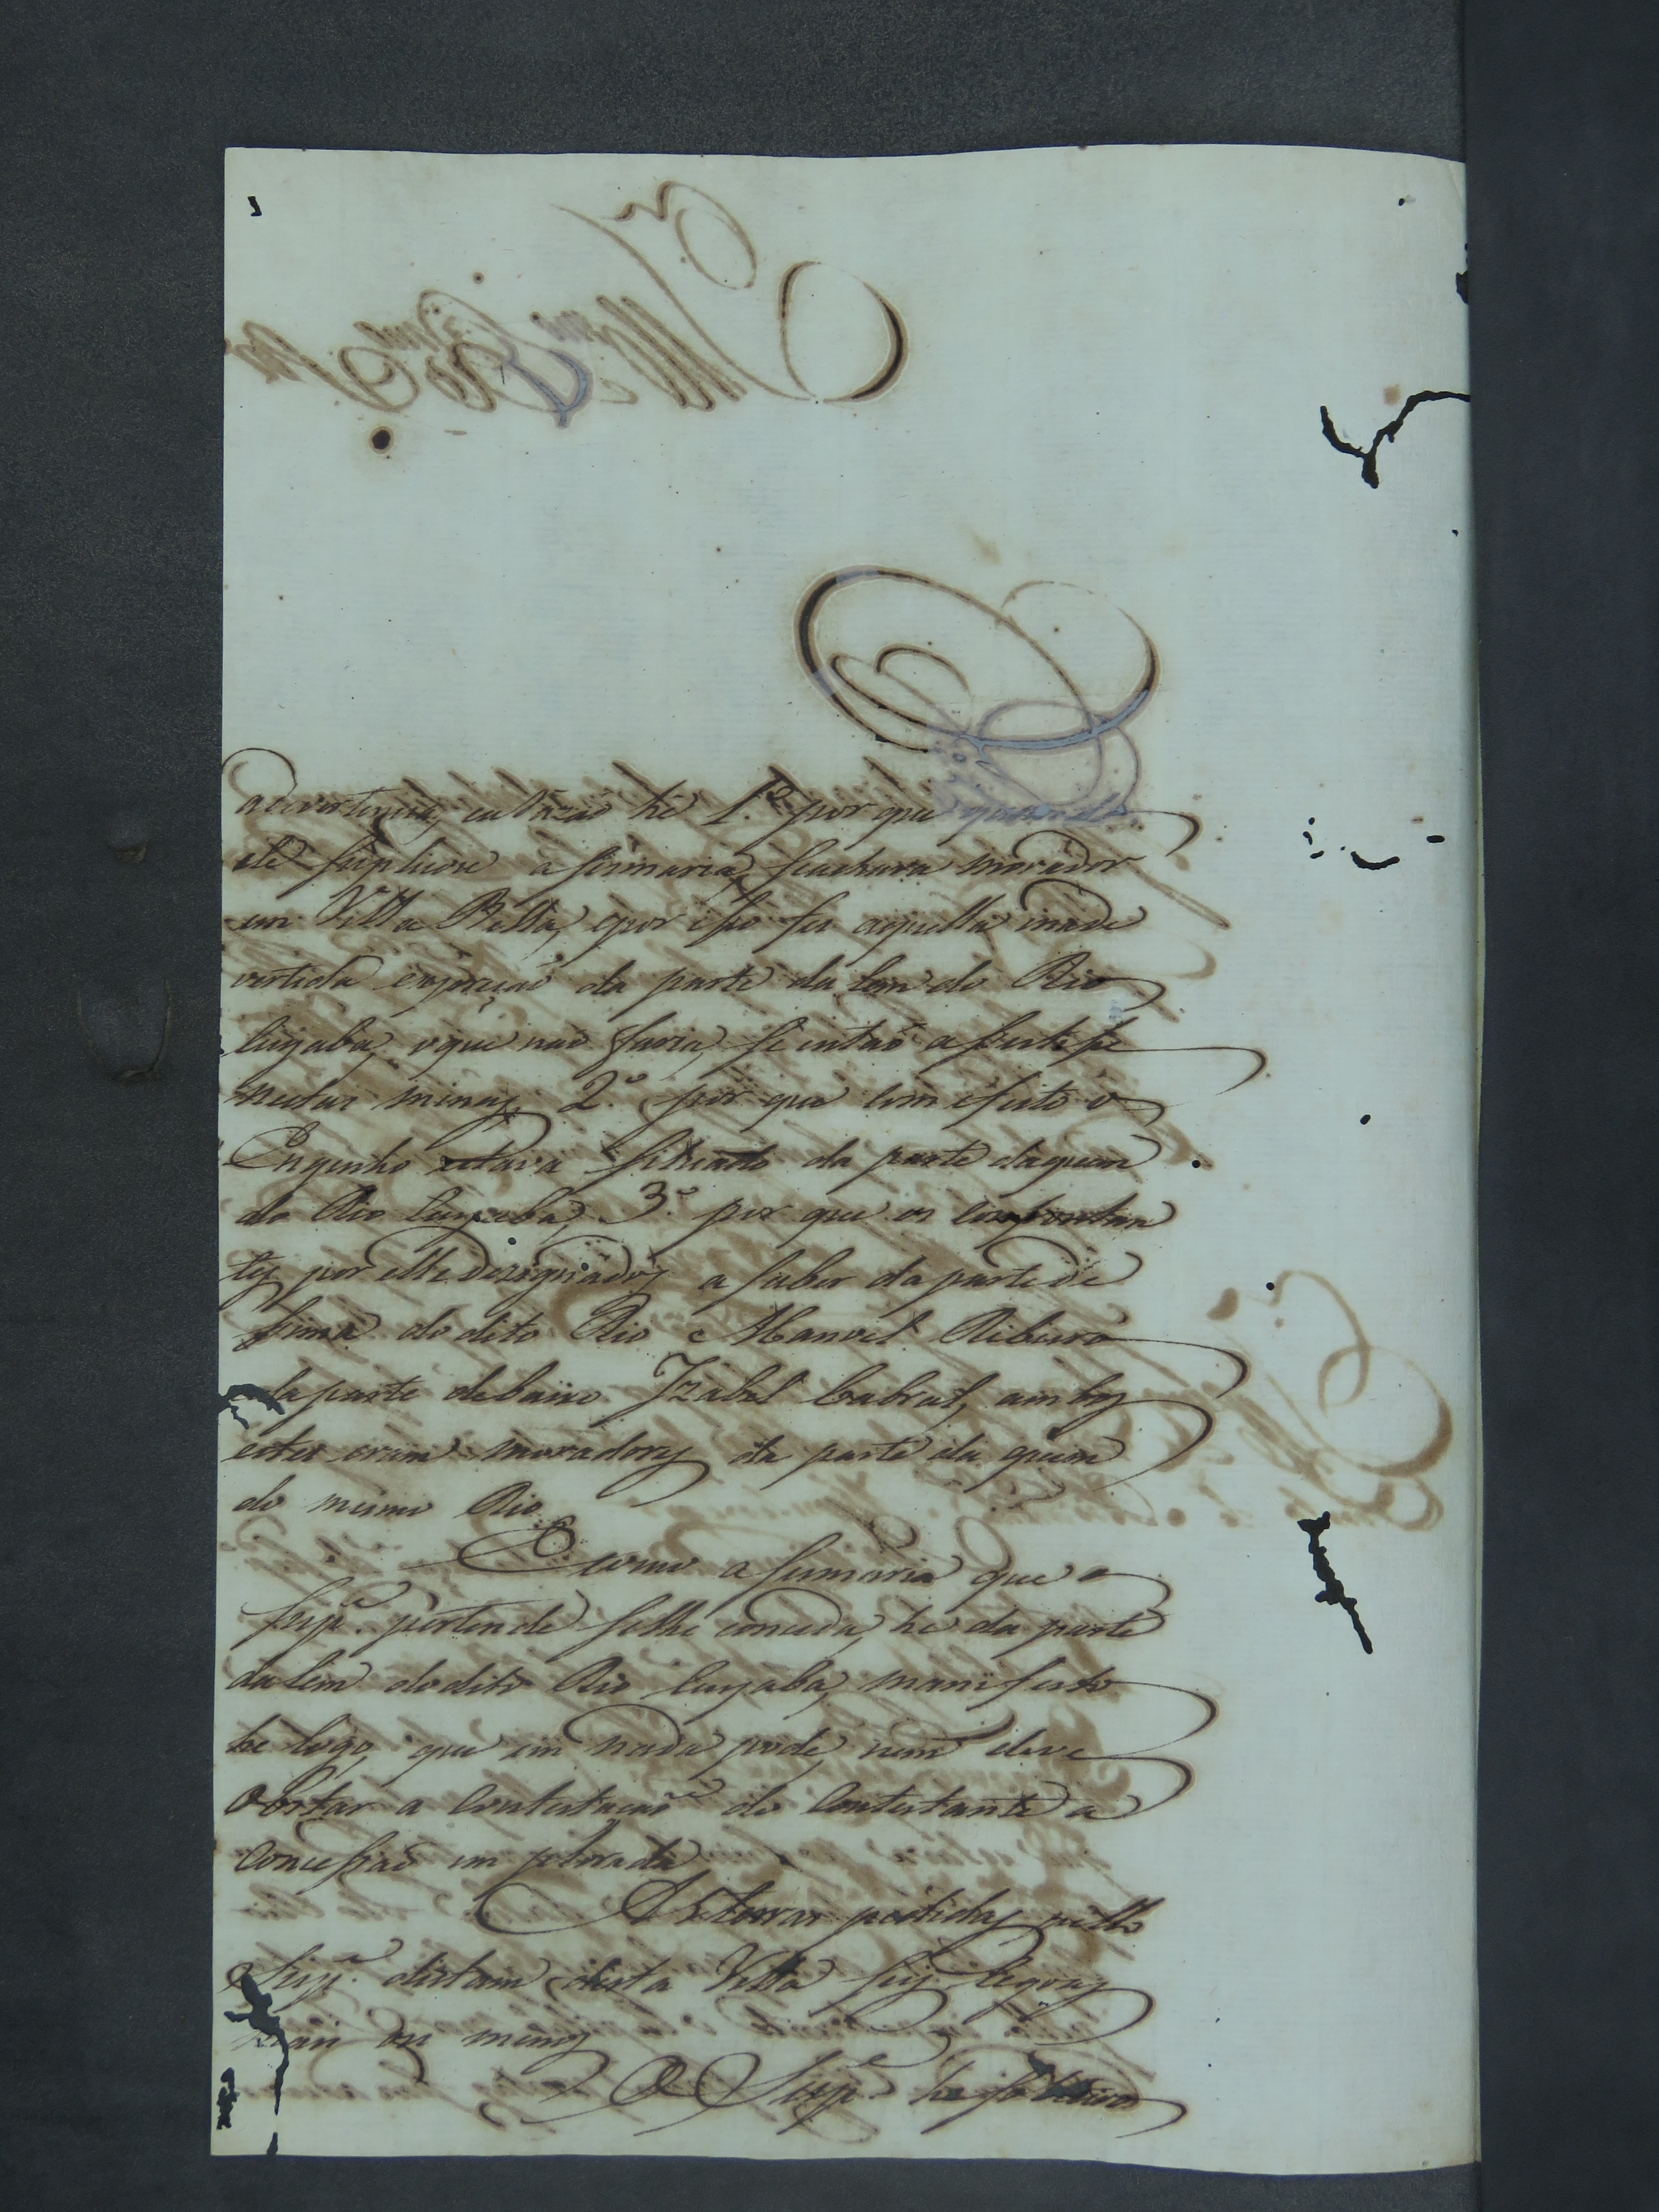 advertencia, cuSazaõ he 1.º por que quando
ele suplicou a sismaria, se achava morador
em Villa Bella, e por isso fes aquella inad
vertida expreçaõ da parte da lem do Rio
Cuyaba, o que naõ faria, se entaõ assestisse
nestas minas, 2.º por que com efeito o
Engenho estava situado da parte daquem
do Rio Cuyaba, 3.º por que os confrontan
tes por elle dezignados a saber da parte de
sima do dito Rio Manoel Ribeiro
e da parte debaixo Izabel Cabral, ambos
estes eram moradores da parte da quem
do mesmo Rio
E como a sismaria que o
Sup.e pertende selhe conceda, he da parte
da lem do dito Rio Cuyaba, manifesto
he logo, que em nada pode, nem deve
obstar a Contestaçaõ do Contestante a
Concessaõ implorada
As terras pedidas pello
Sup.e distam desta Villa seis legoas
mais ou menos
O Sup.e he